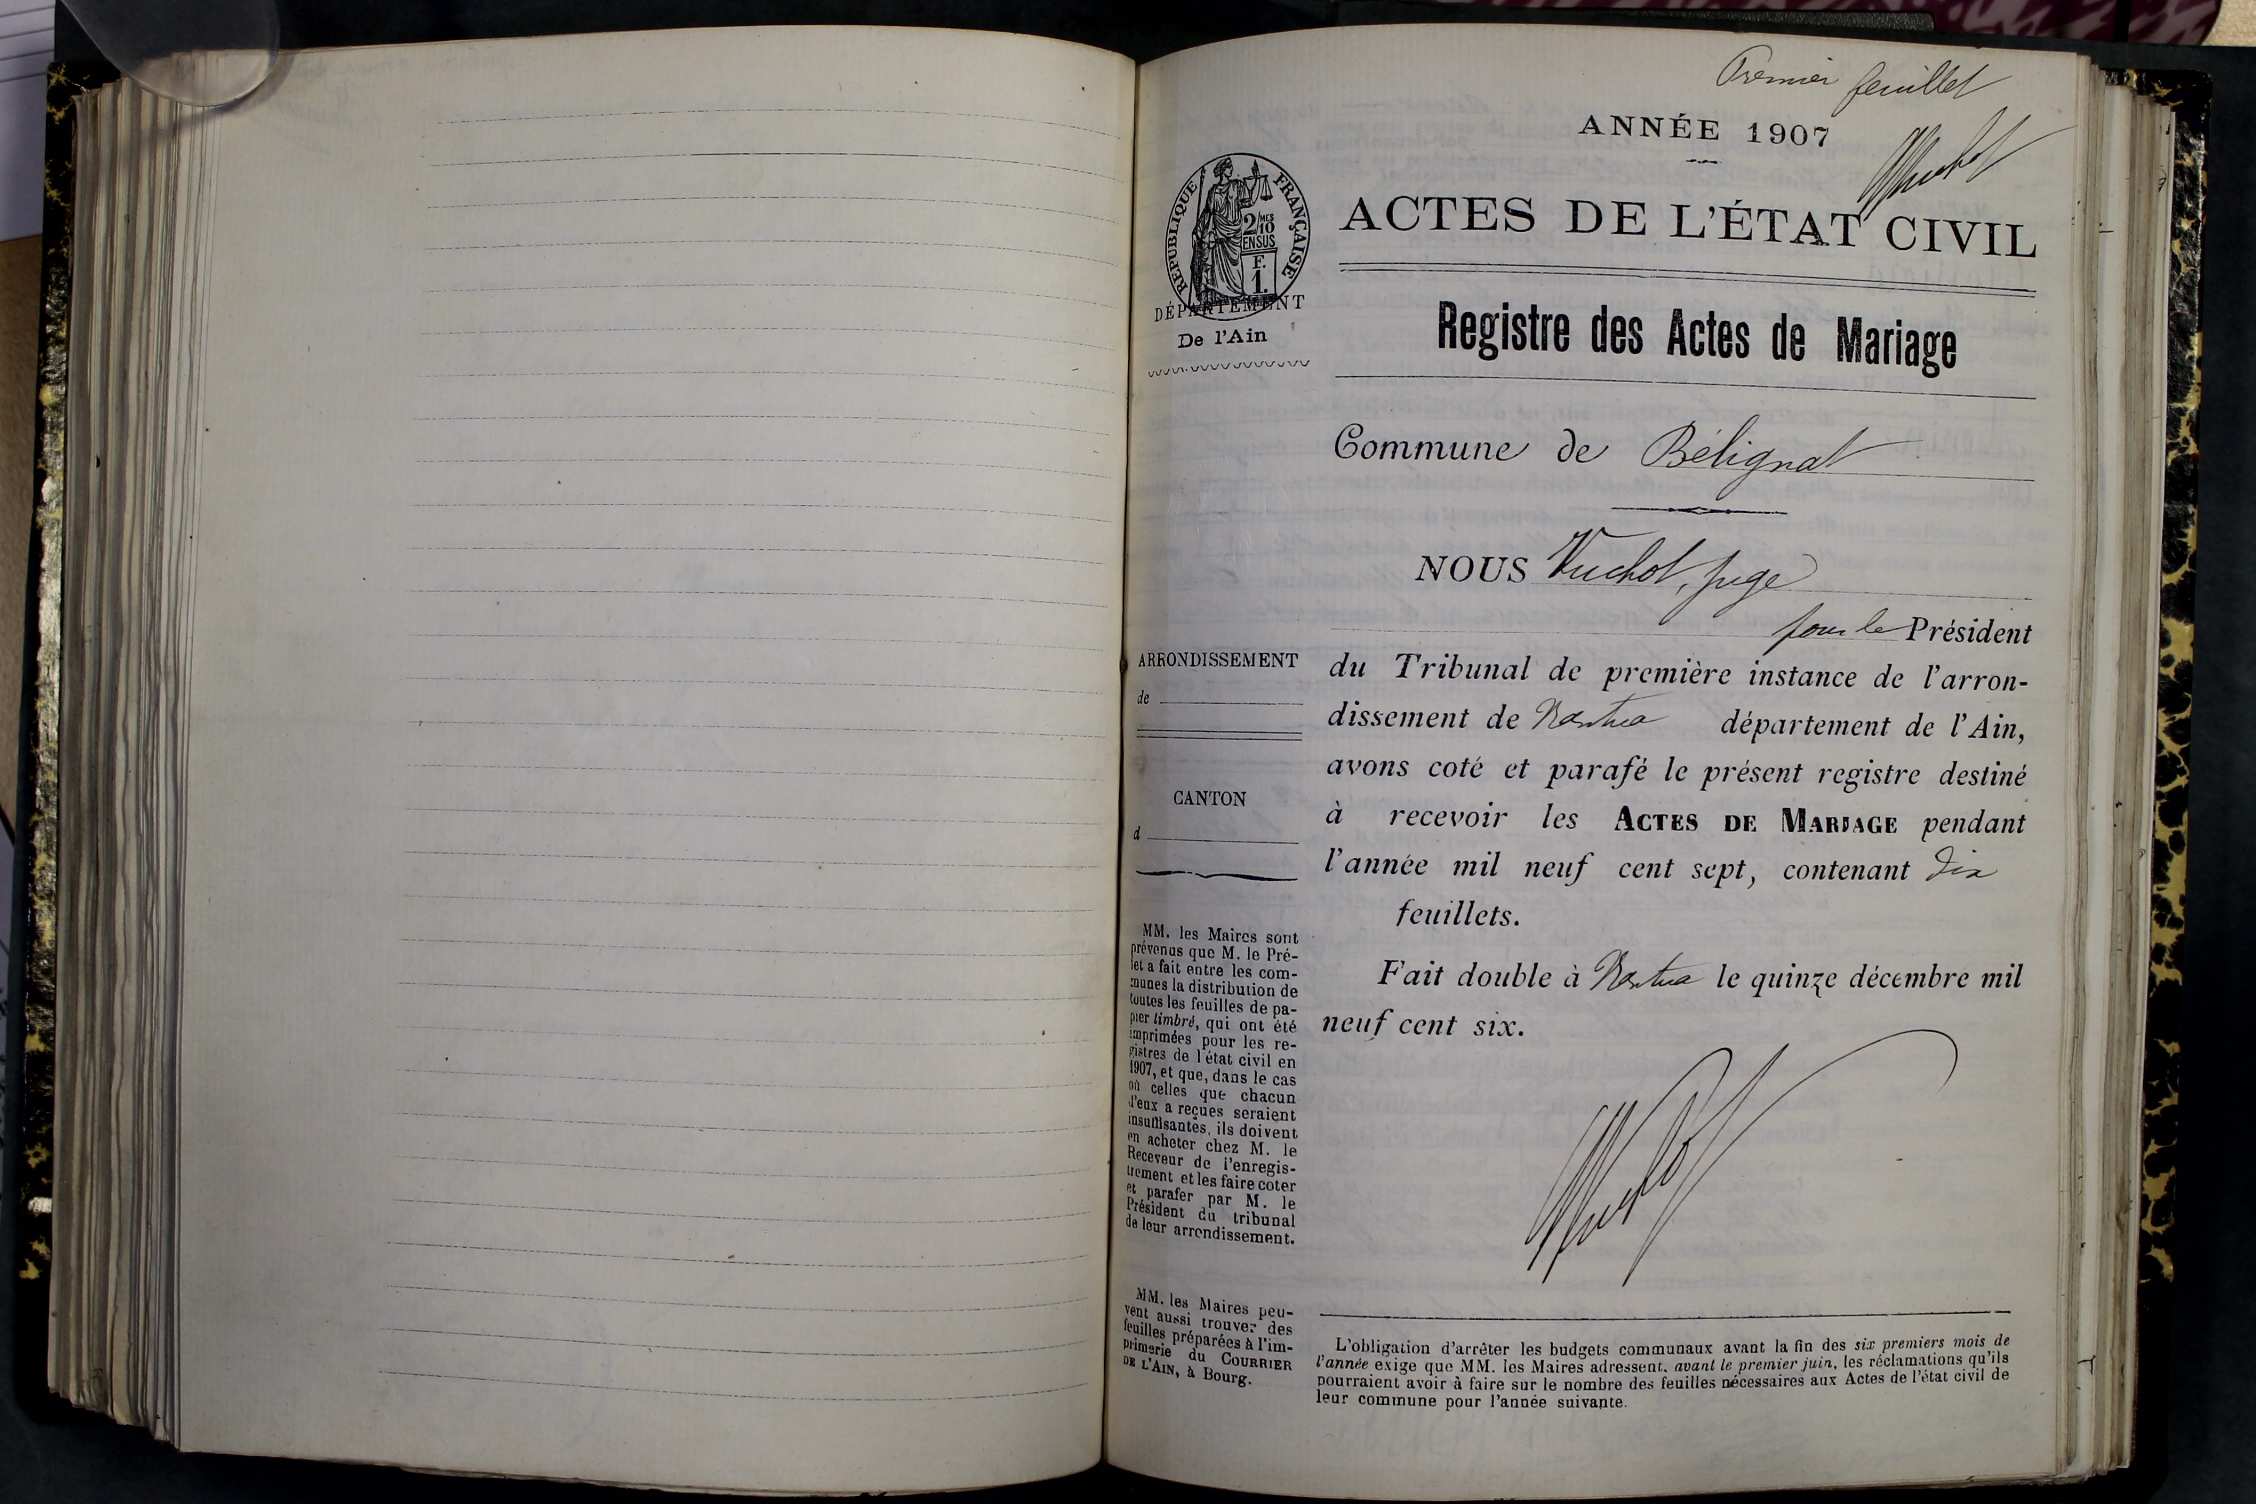 Premier feuillet
ANNÉE 1907
ACTES DE L'ÉTAT CIVIL
RÉPUBLIQUE FRANÇAISE
2/10 MES
EN SUS
F.
1.
DÉPARTEMENT
De l'Ain
Registre des Actes de Mariage
Commune de Bélignat
NOUS Vuchot, juge
pour le Président
du Tribunal de première instance de l'arron-
dissement de Nantua département de l'Ain,
avons coté et parafé le présent registre destiné
à recevoir les ACTES DE MARIAGE pendant
l'année mil neuf cent sept, contenant dix
feuillets.
Fait double à Nantua le quinze décembre mil
neuf cent six.
ARRONDISSEMENT
de
CANTON
d
MM. les Maires sont
prévenus que M. le Pré-
fet a fait entre les com-
munes la distribution de
toutes les feuilles de pa-
pier timbré, qui ont été
imprimées pour les re-
gistres de l'état civil en
1907, et que, dans le cas
où celles que chacun
d'eux a reçues seraient
insuffisantes, ils doivent
en acheter chez M. le
Receveur de l'enregis-
trement et les faire coter
et parafer par M. le
Président du tribunal
de leur arrondissement.
MM. les Maires peu-
vent aussi trouver des
feuilles préparées à l'im-
primerie du COURRIER
DE L'AIN, à Bourg.
L'obligation d'arrêter les budgets communaux avant la fin des six premiers mois de
l'année exige que MM. les Maires adressent, avant le premier juin, les réclamations qu'ils
pourraient avoir à faire sur le nombre des feuilles nécessaires aux Actes de l'état civil de
leur commune pour l'année suivante.